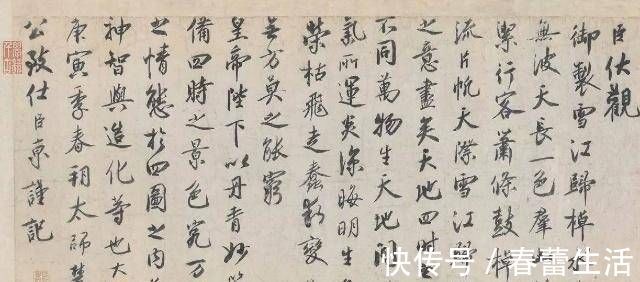 臣伏觀
御製雪江歸棹水
無波天長一色群
潔行客蕭條鼓棹
流片帆天際雪江歸
之意盡矣天地四時
不同萬物生天地間
氣所運炎涼晦明生
榮枯飛走蠢動變
無方莫之能窮
皇帝陛下以丹青妙
備四時之景色究万
之情態於四圖之内
神智與造化等也大
庚寅季春朔太師楚
公致仕臣京謹記
快传号 / 春蕾生活